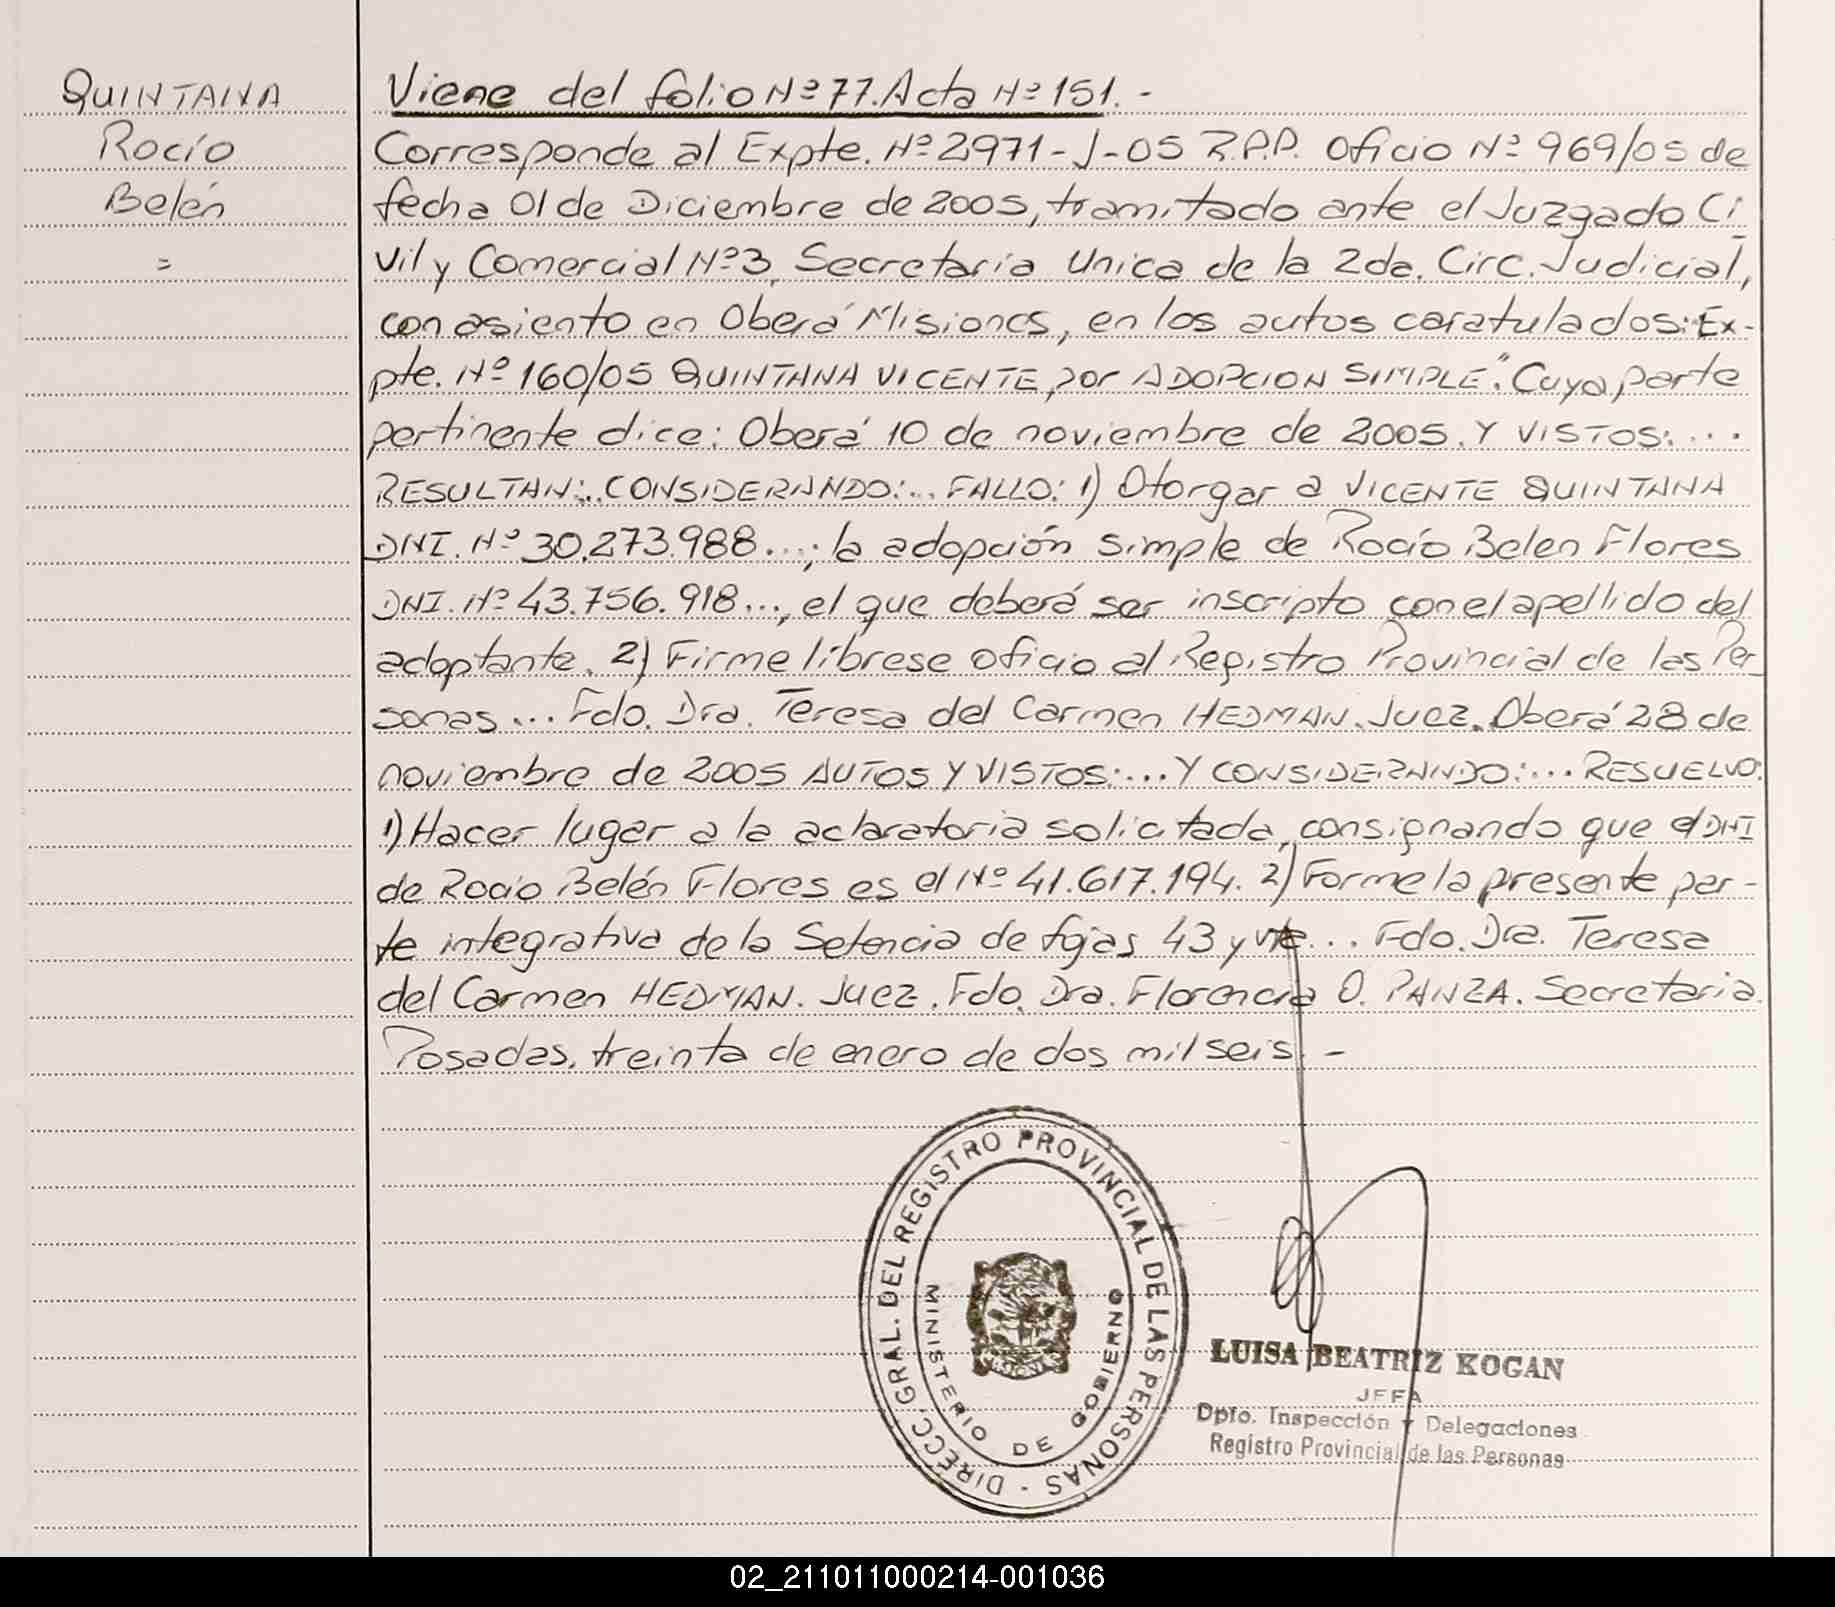 QUINTANA
Rocío
Belén
=
Viene del folio Nº 77. Acta Nº 151.-
Corresponde al Expte. Nº 2971-J-05 R.P.P. Oficio Nº 969/05 de
fecha 01 de Diciembre de 2005, tramitado ante el Juzgado Ci-
vil y Comercial Nº 3, Secretaria Unica de la 2da. Circ. Judicial,
con asiento en Oberá Misiones, en los autos caratulados: "Ex-
pte. Nº 160/05 QUINTANA VICENTE por ADOPCION SIMPLE". Cuya parte
pertinente dice: Oberá 10 de noviembre de 2005. Y VISTOS:...
RESULTAN:... CONSIDERANDO:... FALLO: 1) Otorgar a VICENTE QUINTANA
DNI. Nº 30.273.988...; la adopción simple de Rocío Belen Flores
DNI. Nº 43.756.918..., el que deberá ser inscripto con el apellido del
adoptante. 2) Firme líbrese oficio al Registro Provincial de las Per
sonas... Fdo. Dra. Teresa del Carmen HEDMAN. Juez. Oberá 28 de
noviembre de 2005 AUTOS Y VISTOS:... Y CONSIDERANDO:... RESUELVO:
1) Hacer lugar a la aclaratoria solicitada, consignando que el DNI
de Rocío Belén Flores es el Nº 41.617.194. 2) Forme la presente par-
te integrativa de la Setencia de fojas 43 y vta... Fdo. Dra. Teresa
del Carmen HEDMAN. Juez. Fdo. Dra. Florencia O. PANZA. Secretaria.
Posadas, treinta de enero de dos mil seis.-
DIRECC. GRAL. DEL REGISTRO PROVINCIAL DE LAS PERSONAS -
MINISTERIO DE GOBIERNO
LUISA BEATRIZ KOGAN
JEFA
Dpto. Inspección y Delegaciones
Registro Provincial de las Personas
02_211011000214-001036